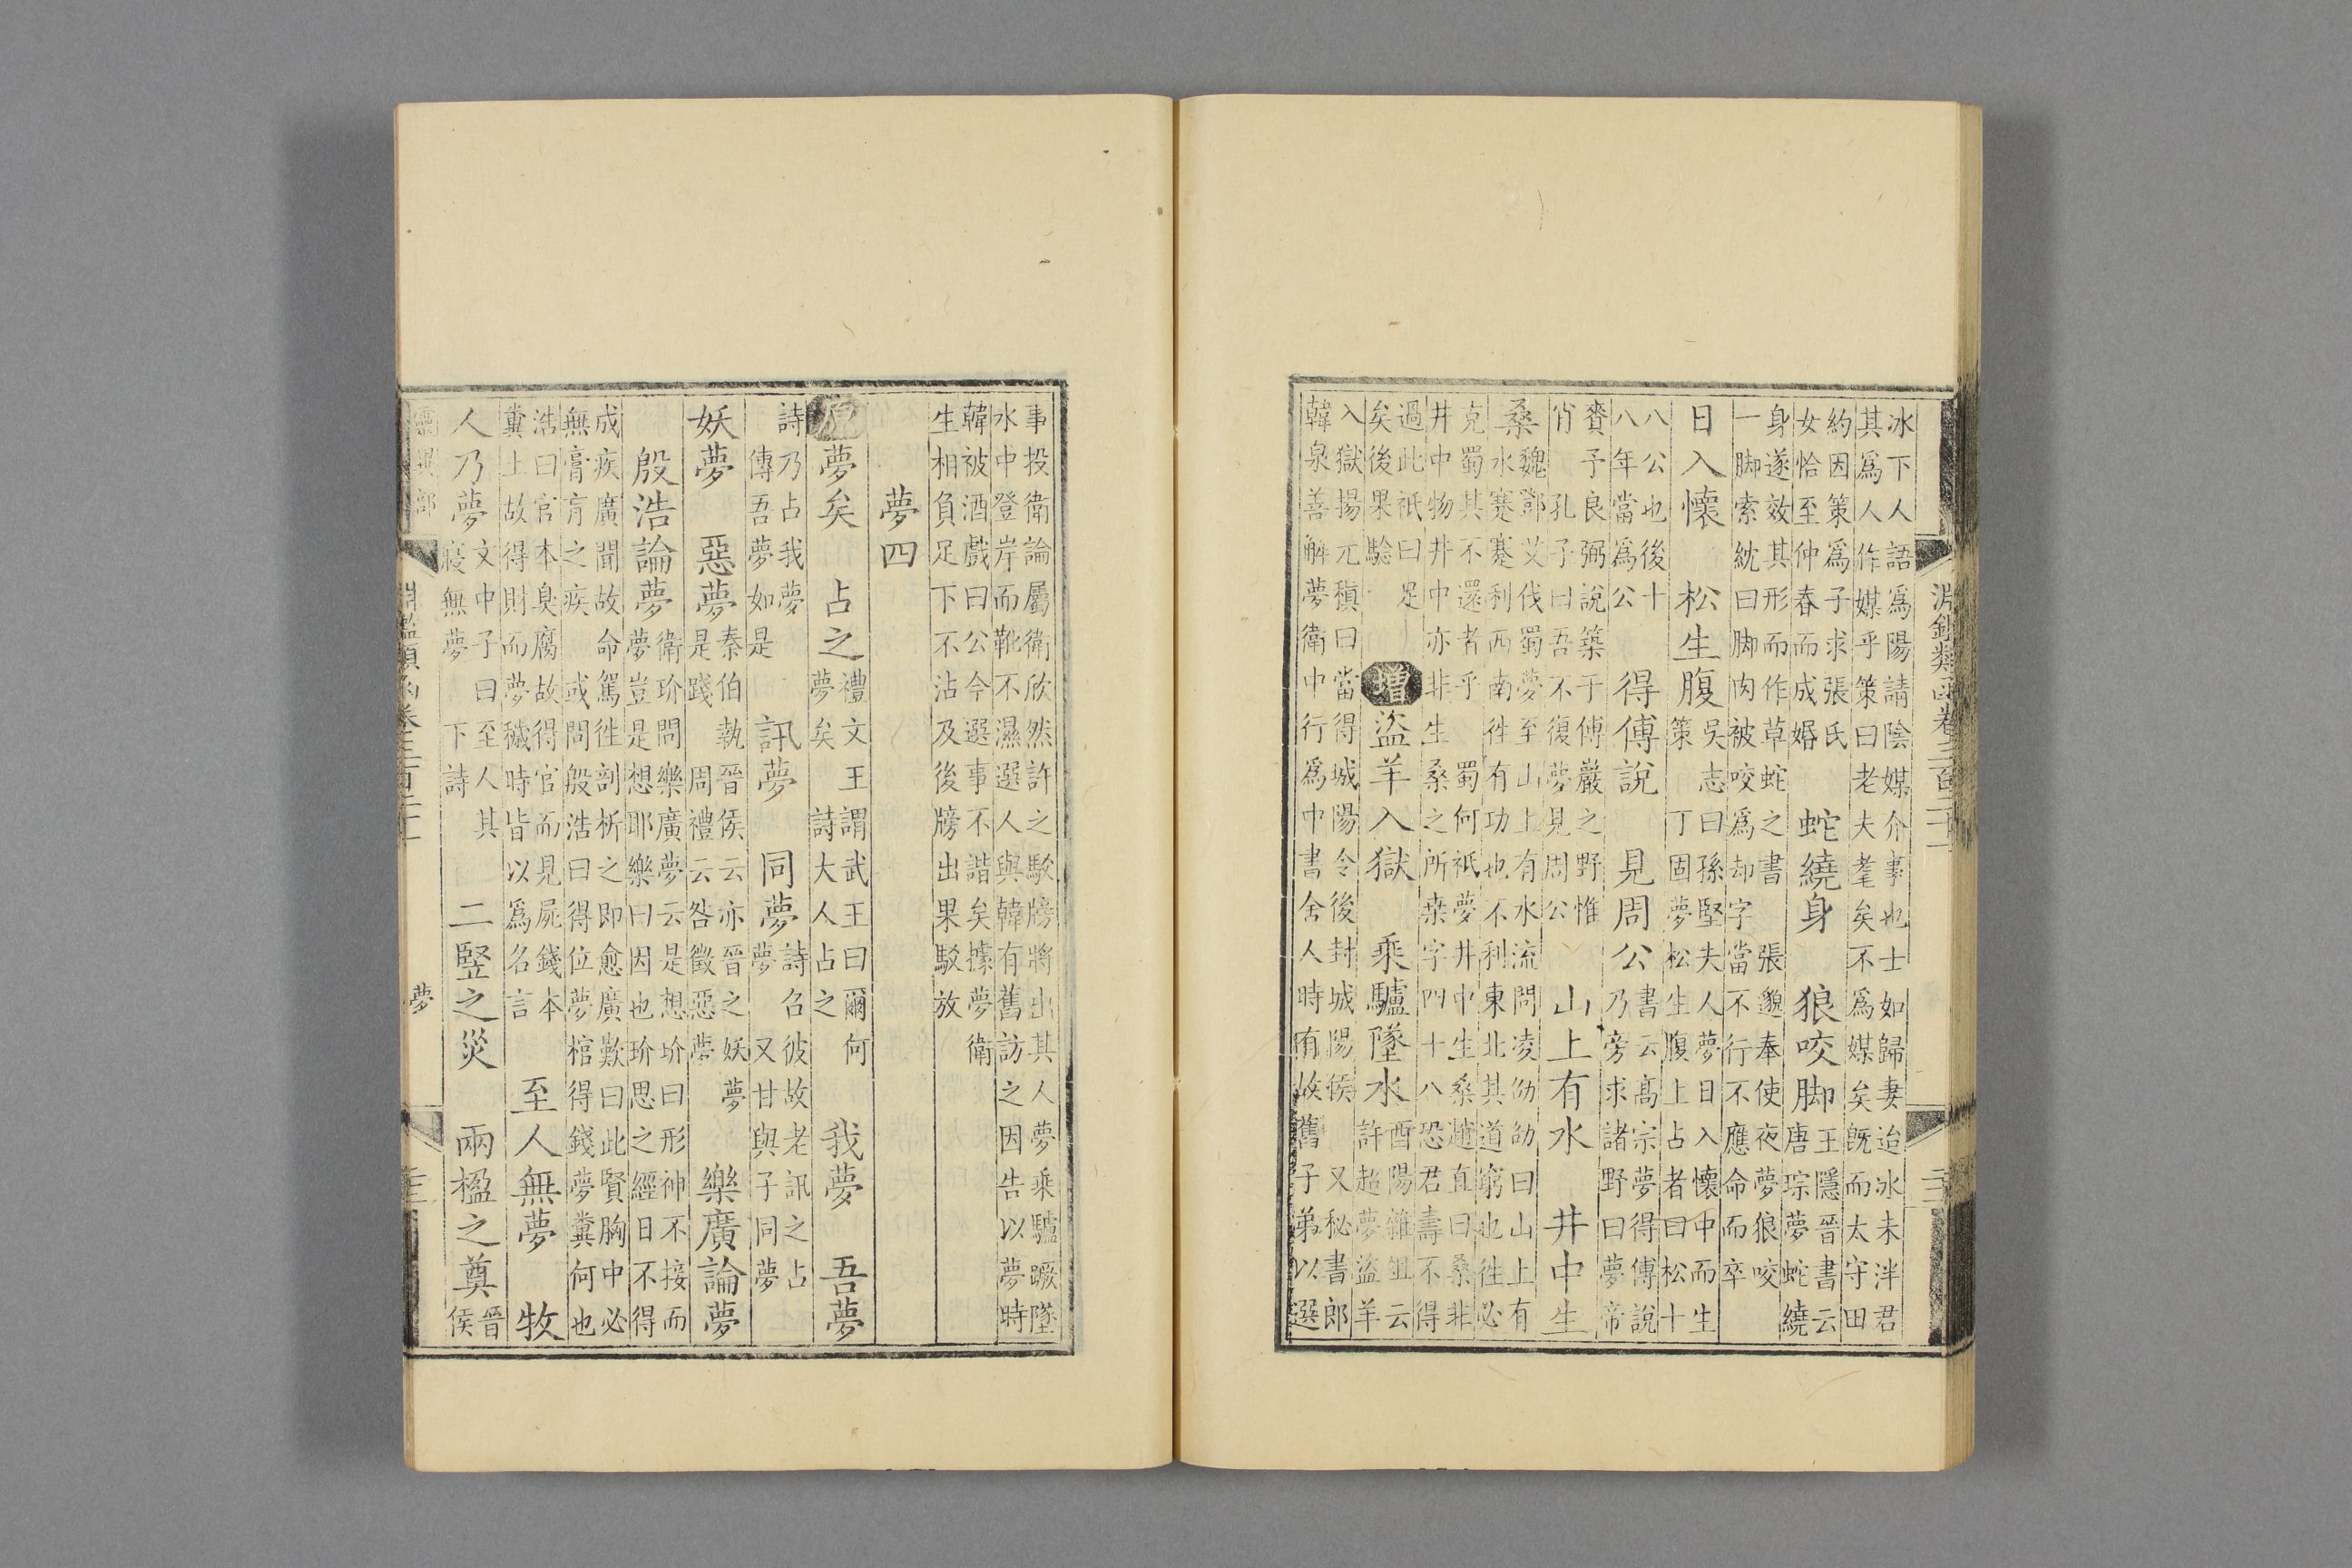 淵鑑類函卷三百二十一
三
冰下人語爲陽請陰媒介事也士如歸妻迨冰未泮君
其爲人作媒乎策曰老夫耄矣不爲媒矣既而太守田
約因策爲子求張氏
女恰至仲春而成婚
蛇繞身　狼咬脚
王隱晉書云
唐琮夢蛇繞
身遂效其形而作草蛇之書　張邈奉使夜夢狼咬
一脚索紞曰脚肉被咬爲却字當不行不應命而卒
日入懷　松生腹
吳志曰孫堅夫人夢日入懷中而生
策　丁固夢松生腹上占者曰松十
八公也後十
八年當爲公
得傅說　見周公
書云高宗夢得傅說
乃旁求諸野曰夢帝
賚予良弼說築于傅巖之野惟
肖　孔子曰吾不復夢見周公
山上有水　井中生
桑
魏鄧艾伐蜀夢至山上有水流問凌劭劭曰山上有
水蹇蹇利西南往有功也不利東北其道窮也往必
克蜀其不還者乎　蜀何祗夢井中生桑趙直曰桑非
井中物井中亦非生桑之所桒字四十八恐君壽不得
過此祇曰足
矣後果驗
增盜羊入獄　乘驢墜水
酉陽雜俎云
許超夢盜羊
入獄揚元稹曰當得城陽令後封城陽侯　又秘書郎
韓泉善解夢衛中行爲中書舍人時有故舊子弟以選
事投衛論屬衛欣然許之駁牓將出其人夢乘驢蹶墜
水中登岸而靴不濕選人與韓有舊訪之因告以夢時
韓被酒戲曰公今選事不諧矣據夢衛
生相負足下不沾及後牓出果駁放
夢四
原夢矣　占之
禮文王謂武王曰爾何
夢矣　詩大人占之
我夢　吾夢
詩乃占我夢
傳吾夢如是
訊夢　同夢
詩召彼故老訊之占
夢　又甘與子同夢
妖夢　惡夢
秦伯執晉侯云亦晉之妖夢
是踐　周禮云咎徵惡夢
樂廣論夢
殷浩論夢
衛玠問樂廣夢云是想玠曰形神不接而
夢豈是想耶樂曰因也玠思之經日不得
成疾廣聞故命駕徃剖析之即愈廣歎曰此賢胸中必
無膏肓之疾　或問殷浩曰得位夢棺得錢夢糞何也
浩曰官本臭腐故得官而見屍錢本
糞土故得財而夢穢時皆以爲名言
至人無夢　牧
人乃夢
文中子曰至人其
寢無夢　下詩
二竪之災　兩楹之奠
晉
侯
淵鑑類函卷三百二十一
夢
三